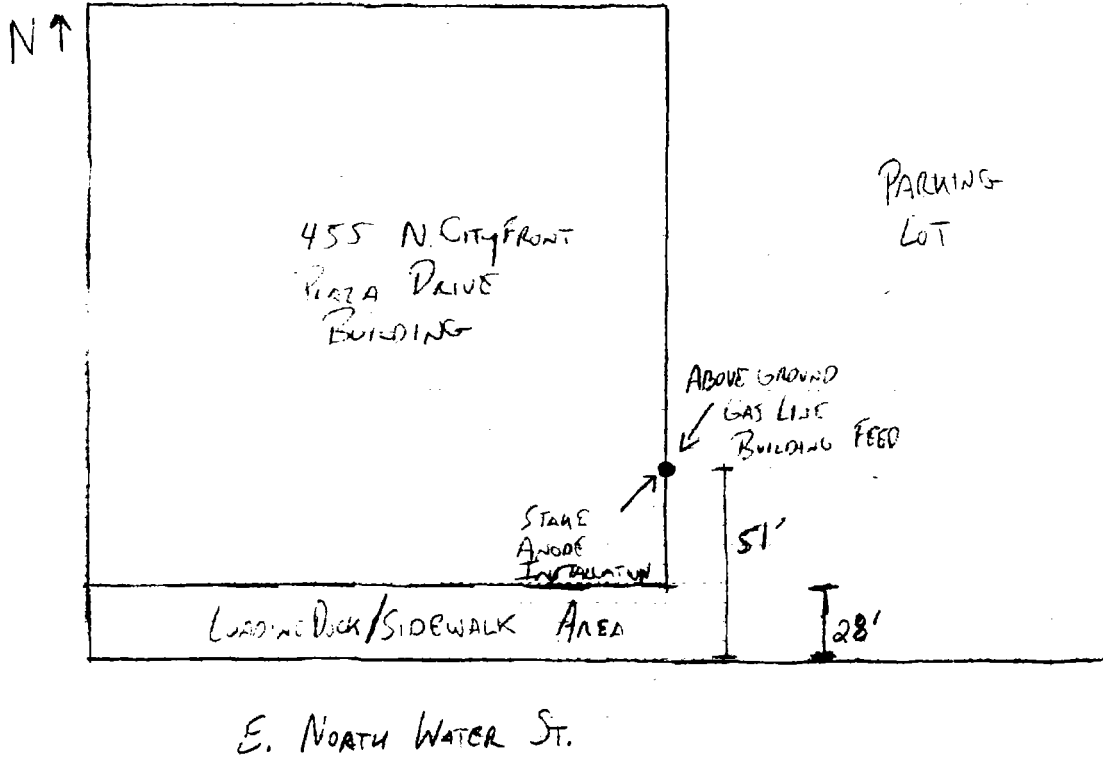 N ↑
PARKING
LOT
455 N. CITYFRONT
PLAZA DRIVE
BUILDING
ABOVE GROUND
GAS LINE
BUILDING FEED
STAKE
ANODE
INSTALLATION
51'
LOADING DOCK/SIDEWALK AREA
28'
E. NORTH WATER ST.